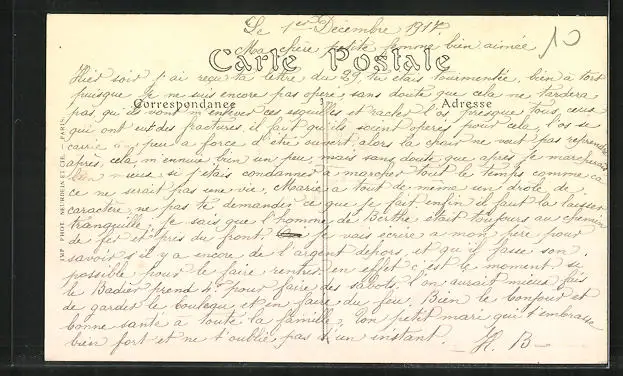 Le 1er Décembre 1917.
Ma chère petite femme bien aimée
10
Carte Postale
Hier soir j'ai reçu ta lettre du 29, tu étais tourmentée, bien à tort
puisque je ne suis encore pas operé sans doute que cela ne tardera
Correspondance
Adresse
pas, qu'ils vont m'enlever ces esquilles et racler l'os presque tous ceux
qui ont eut des fractures, il faut qu'ils soient operés pour cela, l'os se
carrie un peu a force d'être ouvert, alors la chair ne veut pas reprendre
après, cela m'ennuie bien un peu, mais sans doute que après je marcherais
bien mieux si j'étais condanner à marcher tout le temps comme ça
ce ne serait pas une vie, Marie a tout de même un drole de
caractère, ne pas te demander ce que je fait enfin il faut la laisser
tranquille. Je sais que l'homme de Berthe était toujours au chemin
de fer et près du front. je vais écrire a mon père pour
savoir s'il y a encore de l'argent depors, et qu'il fasse son
possible pour le faire rentrer, en effet c'est le moment si
le Badier prend 4f pour faire des sabots, l'on aurait mieux fais
de garder le et en faire du feu. Bien le bonjour et
bonne santé à toute la famille, Ton petit mari qui t'embrasse
bien fort et ne t'oublie pas d'un instant.
H. B
IMP. PHOT. NEURDEIN ET CIE. — PARIS